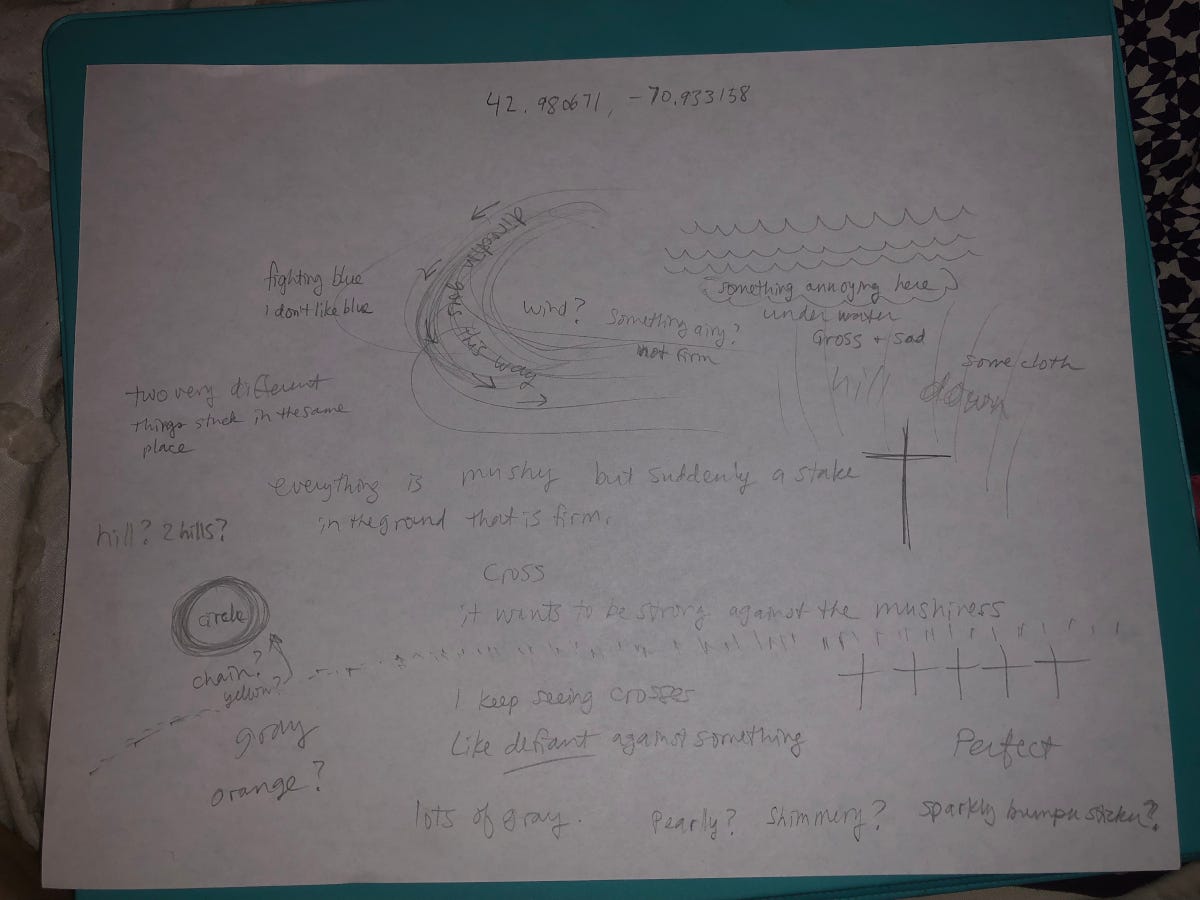 42.980671, -70.933158
direction goes this way
fighting blue
I don't like blue
wind?
something airy?
not firm
something annoying here
under water
Gross + sad
hill down
some cloth
two very different
things stuck in the same
place
everything is mushy but suddenly a stake
in the ground that is firm.
hill? 2 hills?
Cross
it wants to be strong against the mushiness
circle
chain?
yellow?
I keep seeing crosses
Like defiant against something
Perfect
gray
orange?
lots of gray.
Pearly? Shimmery? Sparkly bumper sticker?